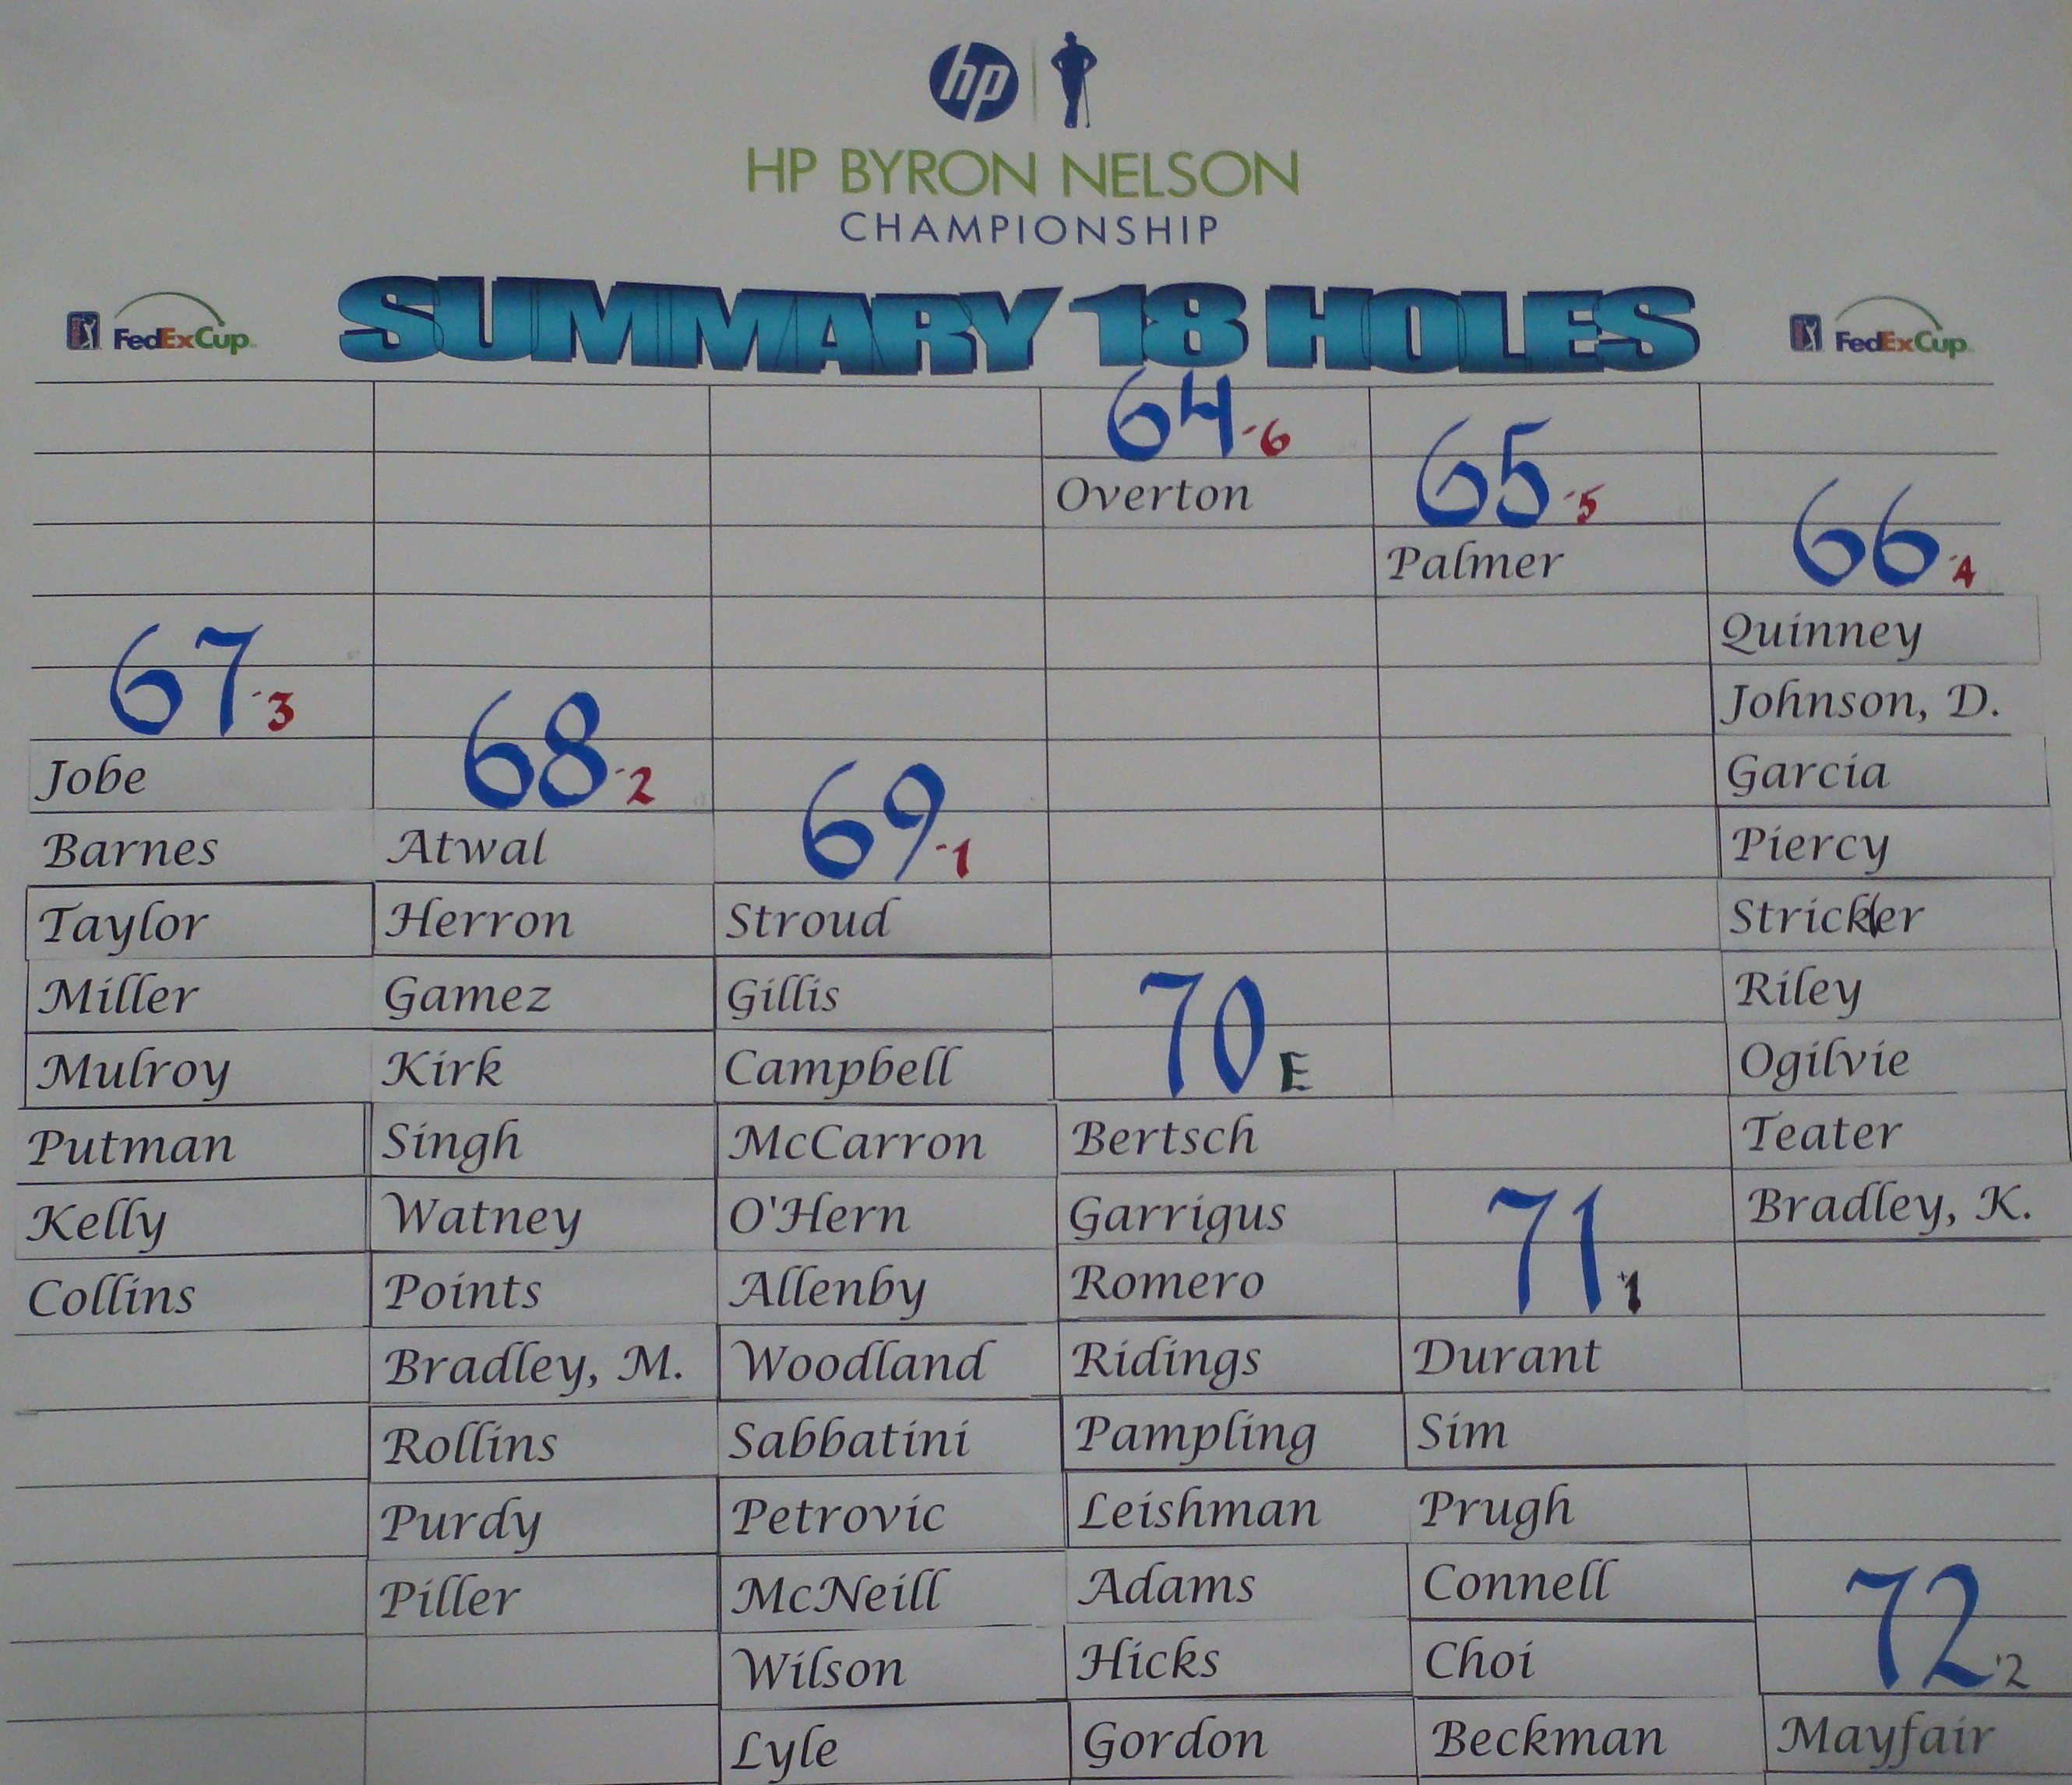 hp
HP BYRON NELSON
CHAMPIONSHIP
FedExCup
SUMMARY 18 HOLES
FedExCup
64 -6
Overton
65 -5
Palmer
66 -4
Quinney
Johnson, D.
Garcia
Piercy
Stricker
Riley
Ogilvie
Teater
Bradley, K.
67 -3
Jobe
Barnes
Taylor
Miller
Mulroy
Putman
Kelly
Collins
68 -2
Atwal
Herron
Gamez
Kirk
Singh
Watney
Points
Bradley, M.
Rollins
Purdy
Piller
69 -1
Stroud
Gillis
Campbell
McCarron
O'Hern
Allenby
Woodland
Sabbatini
Petrovic
McNeill
Wilson
Lyle
70 E
Bertsch
Garrigus
Romero
Ridings
Pampling
Leishman
Adams
Hicks
Gordon
71 +1
Durant
Sim
Prugh
Connell
Choi
Beckman
72 +2
Mayfair